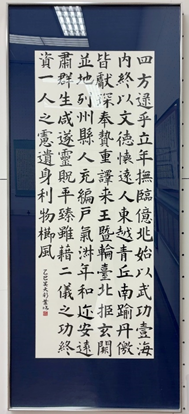 四方逮乎立年撫臨億兆始以武功壹海
內終以文德懷遠人東越青丘南踰丹徼
皆獻琛奉贄重譯來王暨輪臺北拒玄闕
並地列州縣人充編戶氣淑年和迩安遠
肅群生咸遂靈貺畢臻雖藉二儀之功終
資一人之慮遺身利物櫛風
乙巳